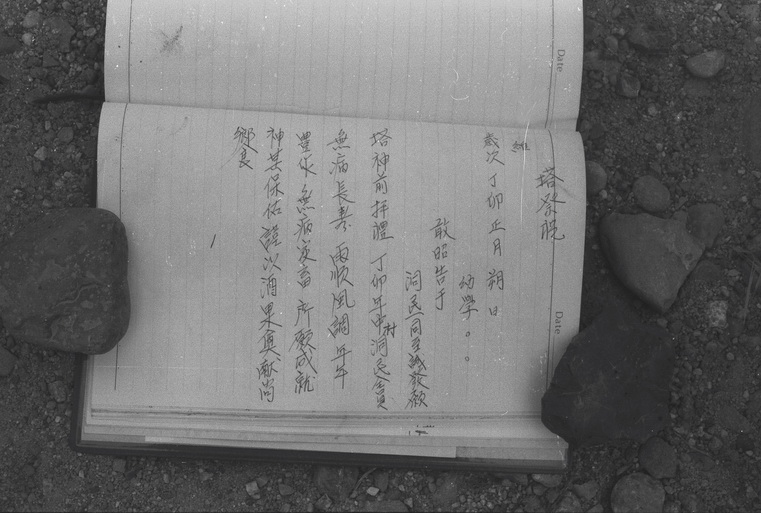 塔祭祝
維
歲次 丁卯 正月 朔 日
幼學。。
敢昭告于
洞民一同至誠發願
塔神前拜禮 丁卯年中村洞民合員
無病長壽 雨順風調 年年
豊作 無病家畜 所願成就
神其保佑 謹以酒果奠献尚
鄕食
Date
Date